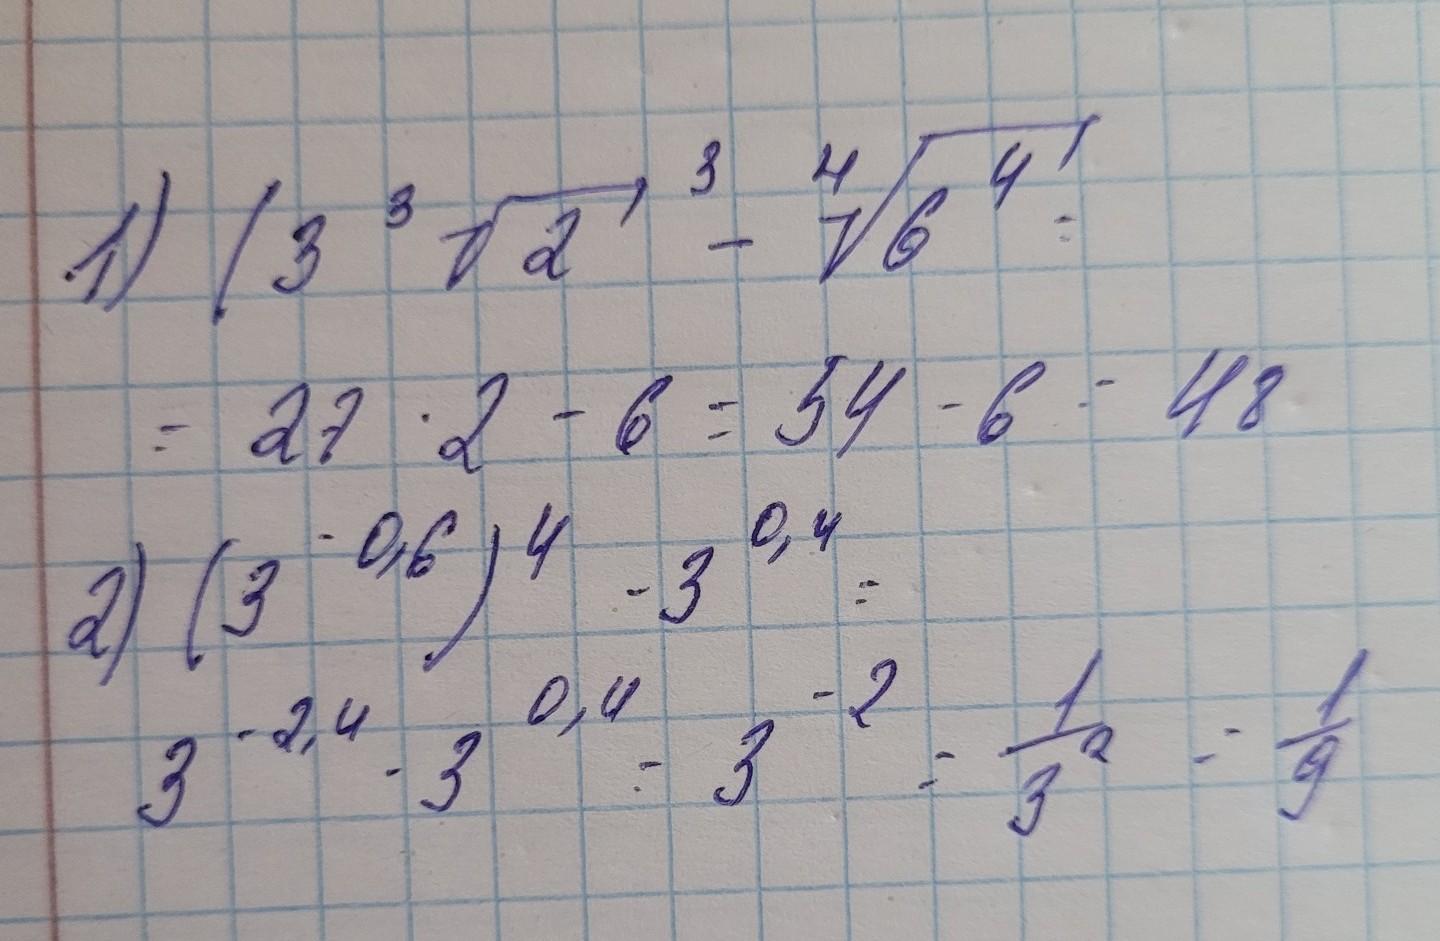 1) (3 ³√2)³ - ⁴√6⁴ =
= 27 · 2 - 6 = 54 - 6 = 48
2) (3^-0,6)^4 · 3^0,4 =
3^-2,4 · 3^0,4 = 3^-2 = 1/3² = 1/9